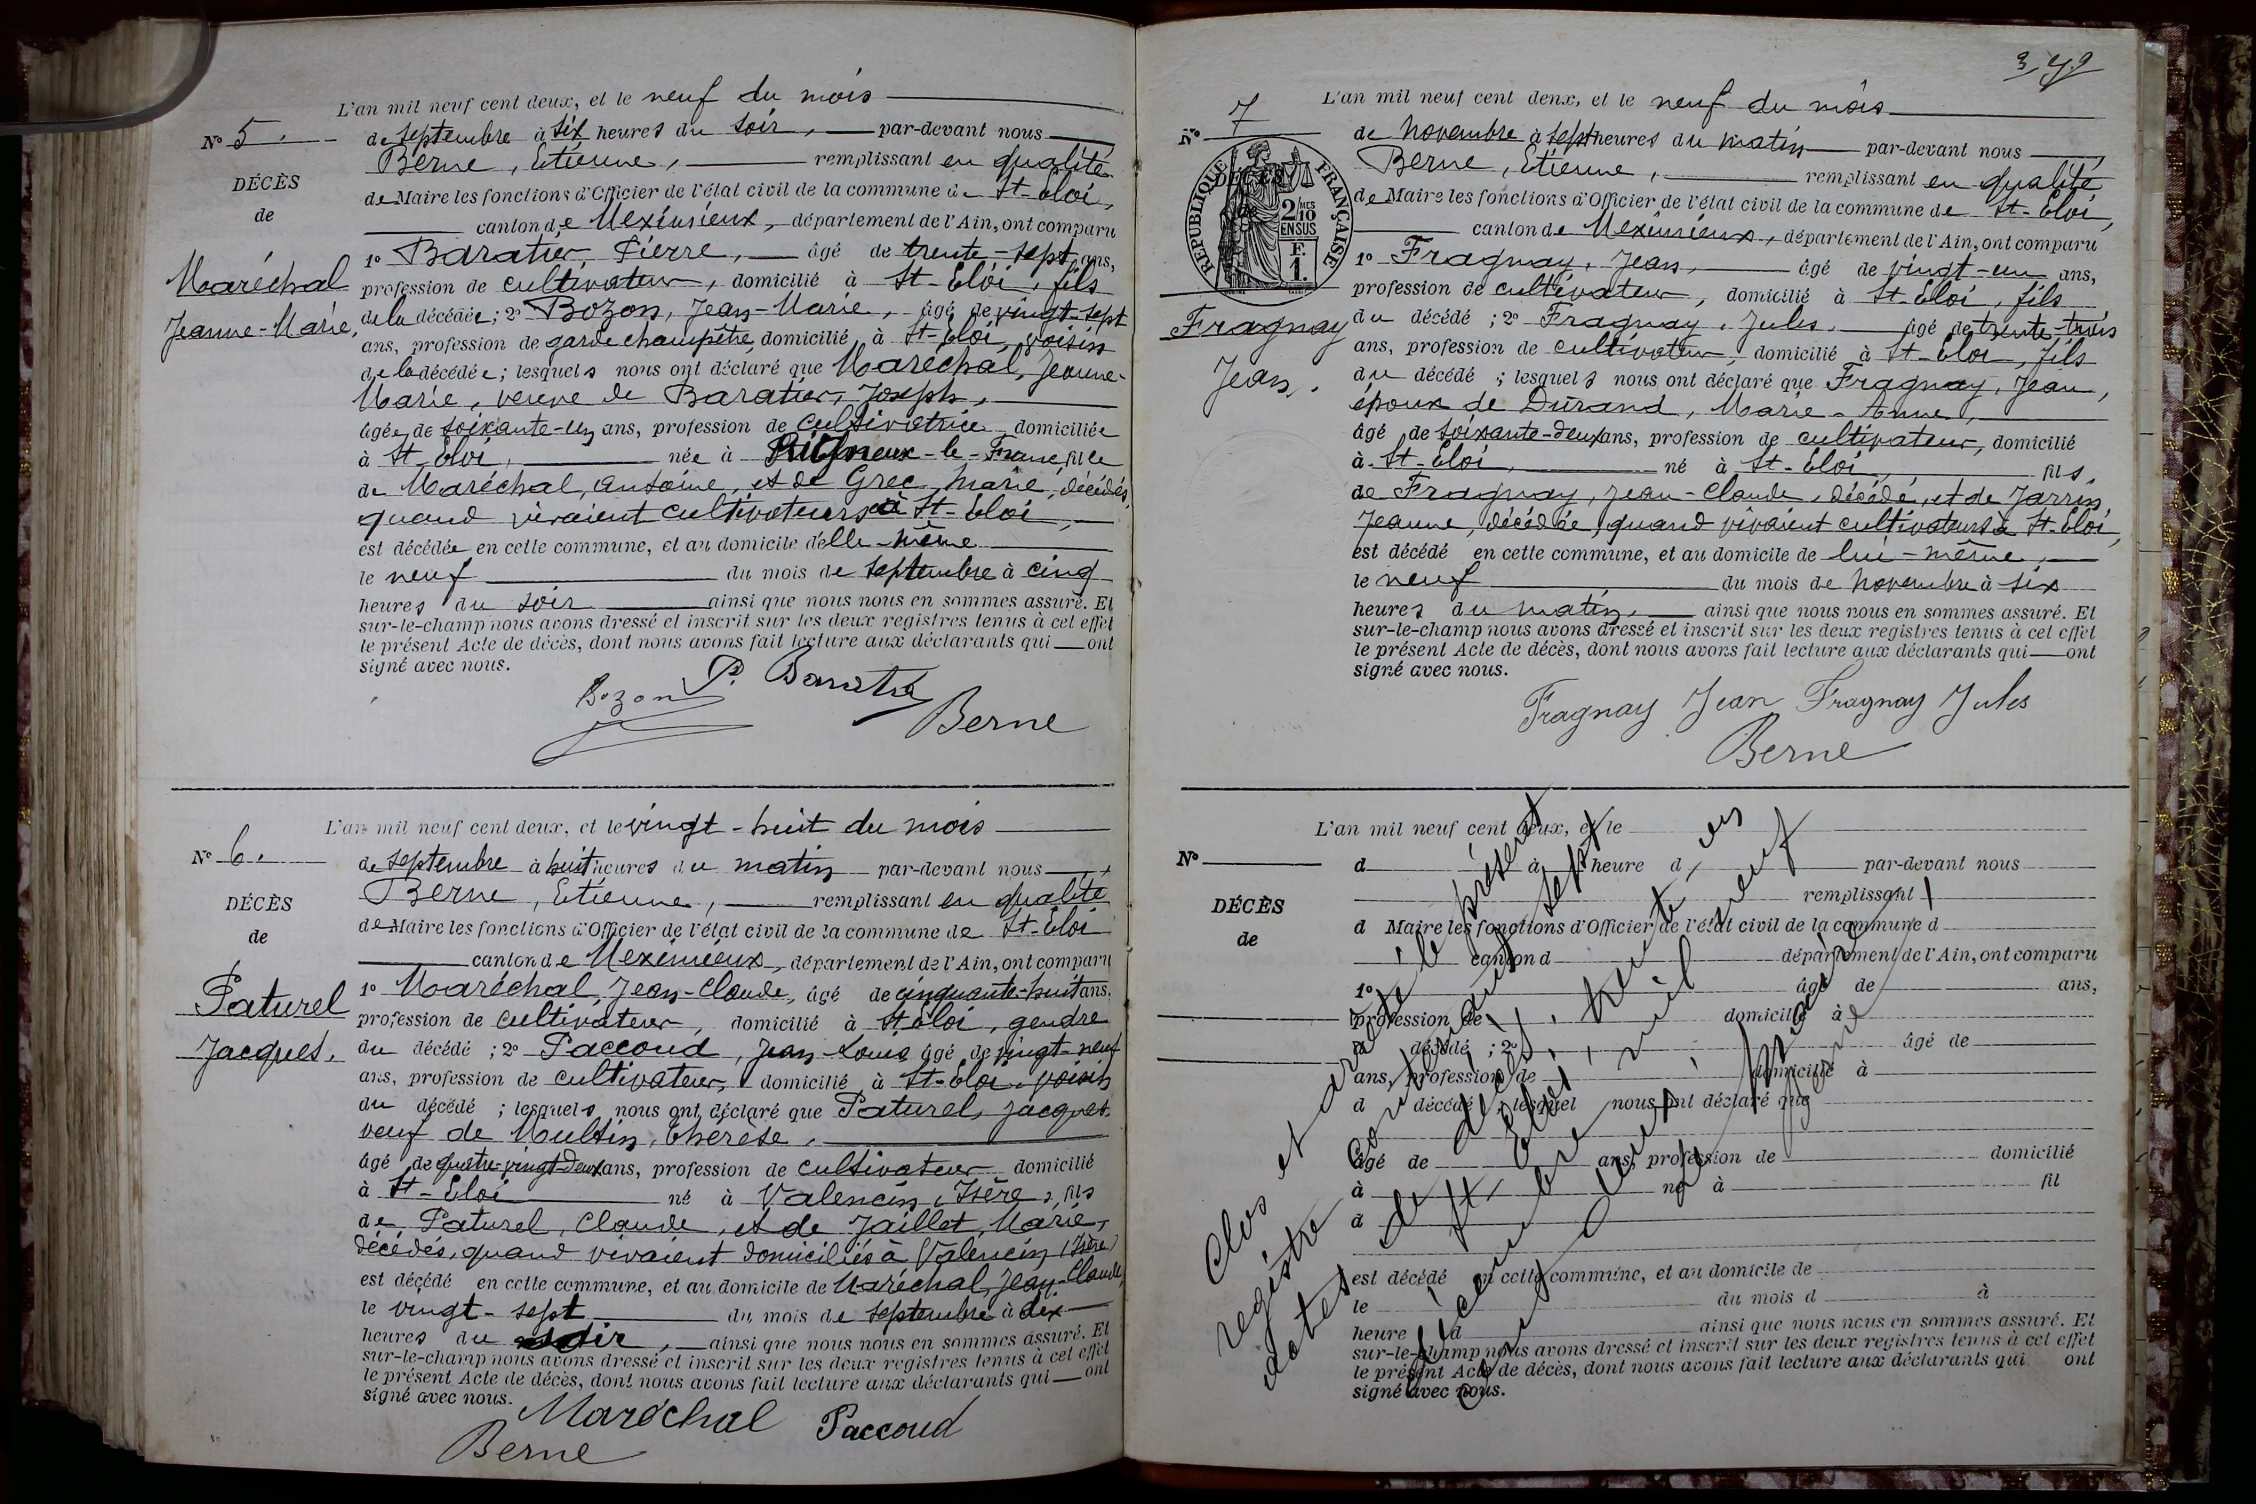 L'an mil neuf cent deux, et le neuf du mois
N° 5.
de septembre à six heures du soir, par-devant nous
Berne, Etienne, remplissant en qualité
DÉCÈS
de Maire les fonctions d'Officier de l'état civil de la commune de St-Eloi,
de
canton de Meximieux, département de l'Ain, ont comparu
1° Baratier, Pierre, âgé de trente-sept ans,
Maréchal
profession de cultivateur, domicilié à St-Eloi, fils
Jeanne-Marie,
de la décédée; 2° Bozon, Jean-Marie, âgé de vingt-sept
ans, profession de garde champêtre, domicilié à St-Eloi, voisin
de la décédée; lesquels nous ont déclaré que Maréchal, Jeanne-
Marie, veuve de Baratier, Joseph,
âgée de soixante-un ans, profession de cultivatrice domiciliée
à St-Eloi, née à Rigneux-le-Franc, fille
de Maréchal, Antoine, et de Grec, Marie, décédés,
quand vivaient cultivateurs à St-Eloi,
est décédée en cette commune, et au domicile d'elle-même
le neuf du mois de septembre à cinq
heures du soir ainsi que nous nous en sommes assuré. Et
sur-le-champ nous avons dressé et inscrit sur les deux registres tenus à cet effet
le présent Acte de décès, dont nous avons fait lecture aux déclarants qui ont
signé avec nous.
Bozon P. Baratier
Berne
L'an mil neuf cent deux, et le vingt-huit du mois
N° 6.
de septembre à huit heures du matin par-devant nous
Berne, Etienne, remplissant en qualité
DÉCÈS
de Maire les fonctions d'Officier de l'état civil de la commune de St-Eloi
de
canton de Meximieux, département de l'Ain, ont comparu
1° Maréchal, Jean-Claude, âgé de cinquante-huit ans,
Paturel
profession de cultivateur, domicilié à St-Eloi, gendre
Jacques.
du décédé; 2° Paccoud, Jean-Louis âgé de vingt-neuf
ans, profession de cultivateur, domicilié à St-Eloi, voisin
du décédé; lesquels nous ont déclaré que Paturel, Jacques
veuf de Multin, Thérèse,
âgé de quatre-vingt-deux ans, profession de cultivateur domicilié
à St-Eloi né à Valencin, Isère, fils
de Paturel, Claude, et de Jaillet, Marie,
décédés, quand vivaient domiciliés à Valencin (Isère)
est décédé en cette commune, et au domicile de Maréchal, Jean-Claude,
le vingt-sept du mois de septembre à dix
heures du soir, ainsi que nous nous en sommes assuré. Et
sur-le-champ nous avons dressé et inscrit sur les deux registres tenus à cet effet
le présent Acte de décès, dont nous avons fait lecture aux déclarants qui ont
signé avec nous.
Maréchal Paccoud
Berne
L'an mil neuf cent deux, et le neuf du mois
N° 7
de novembre à sept heures du matin par-devant nous
Berne, Etienne, remplissant en qualité
RÉPUBLIQUE FRANÇAISE
2/10 MES EN SUS
F. 1.
de Maire les fonctions d'Officier de l'état civil de la commune de St-Eloi,
canton de Meximieux, département de l'Ain, ont comparu
1° Fragnay, Jean, âgé de vingt-un ans,
profession de cultivateur, domicilié à St-Eloi, fils
Fragnay
Jean.
du décédé; 2° Fragnay, Jules, âgé de trente-trois
ans, profession de cultivateur, domicilié à St-Eloi, fils
du décédé; lesquels nous ont déclaré que Fragnay, Jean,
époux de Durand, Marie-Anne,
âgé de soixante-deux ans, profession de cultivateur, domicilié
à St-Eloi, né à St-Eloi, fils,
de Fragnay, Jean-Claude, décédé, et de Jarrin,
Jeanne, décédée, quand vivaient cultivateurs à St-Eloi,
est décédé en cette commune, et au domicile de lui-même,
le neuf du mois de novembre à six
heures du matin, ainsi que nous nous en sommes assuré. Et
sur-le-champ nous avons dressé et inscrit sur les deux registres tenus à cet effet
le présent Acte de décès, dont nous avons fait lecture aux déclarants qui ont
signé avec nous.
Fragnay Jean Fragnay Jules
Berne
L'an mil neuf cent deux, et le
N°
d à heure d par-devant nous
remplissant
DÉCÈS
d Maire les fonctions d'Officier de l'état civil de la commune d
de
canton d département de l'Ain, ont comparu
1° âgé de ans,
profession de domicilié à
d décédé; 2° âgé de
ans, profession de domicilié à
d décédé; lesquel nous ont déclaré que
âgé de ans, profession de domicilié
à né à fil
d
est décédé en cette commune, et au domicile de
le du mois d à
heure d ainsi que nous nous en sommes assuré. Et
sur-le-champ nous avons dressé et inscrit sur les deux registres tenus à cet effet
le présent Acte de décès, dont nous avons fait lecture aux déclarants qui ont
signé avec nous.
Clos et arrêté le présent
registre contenant sept
actes de décès,
St-Eloi, trente un
décembre mil neuf
cent deux,
Le Maire,
Berne